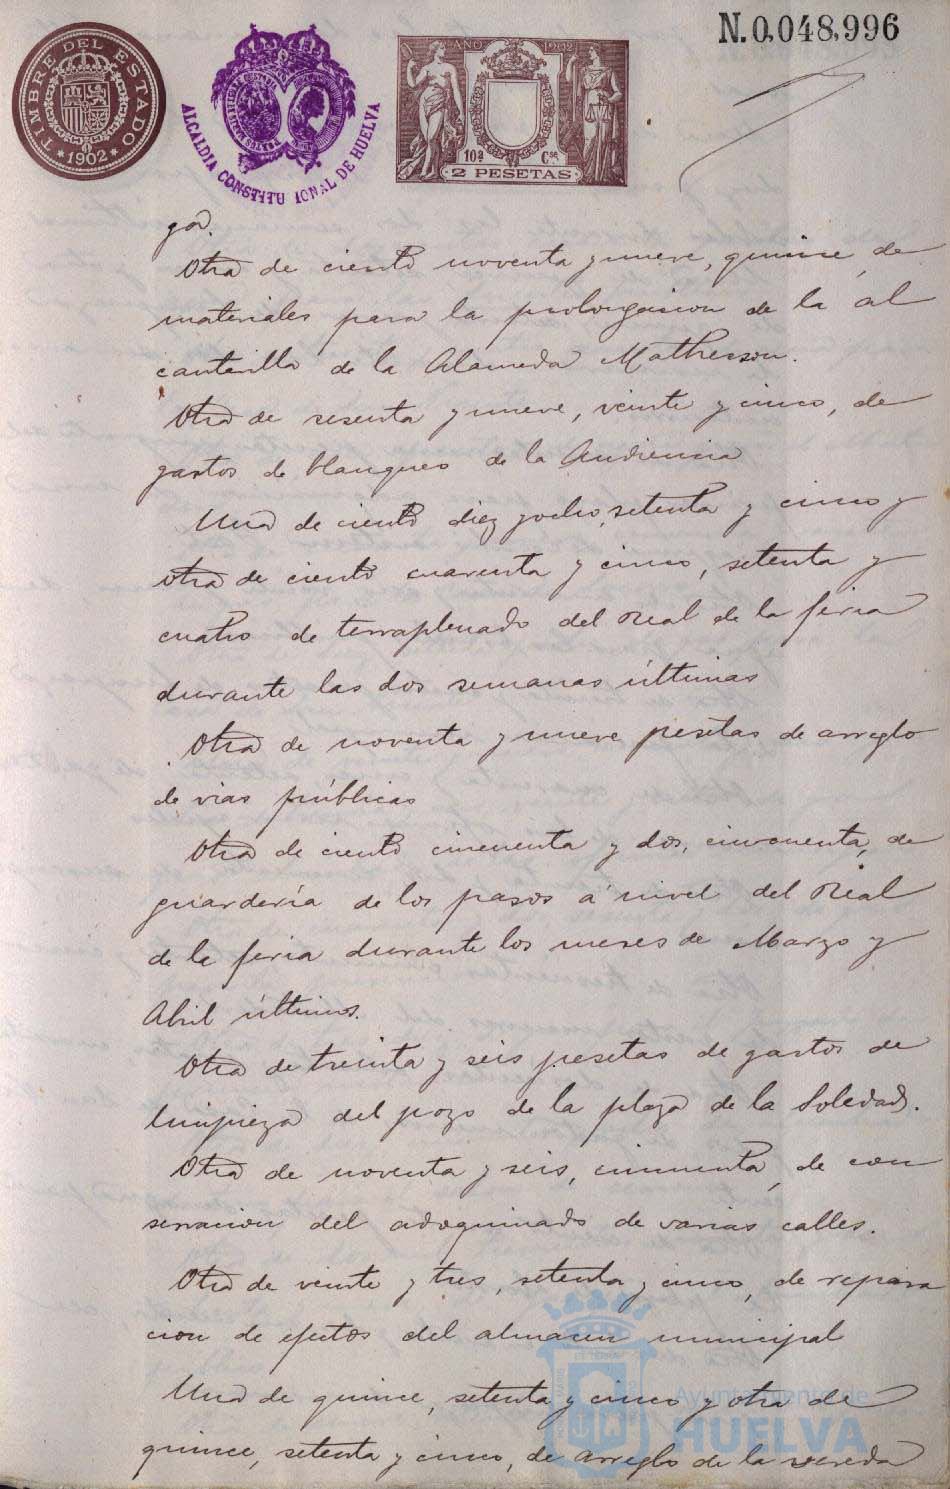 N.0,048,996
TIMBRE DEL ESTADO
*1902*
ALCALDIA CONSTITUCIONAL DE HUELVA
AÑO 1902
10ª Cse
2 PESETAS
gas.
Otra de ciento noventa y nueve, quince, de
materiales para la prolongacion de la al
cantarilla de la Alameda Mathesson.
Otra de sesenta y nueve, veinte y cinco, de
gastos de blanqueo de la Audiencia
Una de ciento diez y ocho, setenta y cinco y
otra de ciento cuarenta y cinco, setenta y
cuatro de terraplenado del Real de la feria
durante las dos semanas últimas
Otra de noventa y nueve pesetas de arreglo
de vias públicas
Otra de ciento cincuenta y dos, cincuenta, de
guardería de los pasos á nivel del Real
de la feria durante los meses de Marzo y
Abril últimos.
Otra de treinta y seis pesetas de gastos de
limpieza del pozo de la plaza de la Soledad.
Otra de noventa y seis, cincuenta, de con
servacion del adoquinado de varias calles.
Otra de veinte y tres, setenta y cinco, de repara
cion de efectos del almacen municipal
Una de quince, setenta y cinco y otra de
quince, setenta y cinco, de arreglo de la vereda
Ayuntamiento de
HUELVA